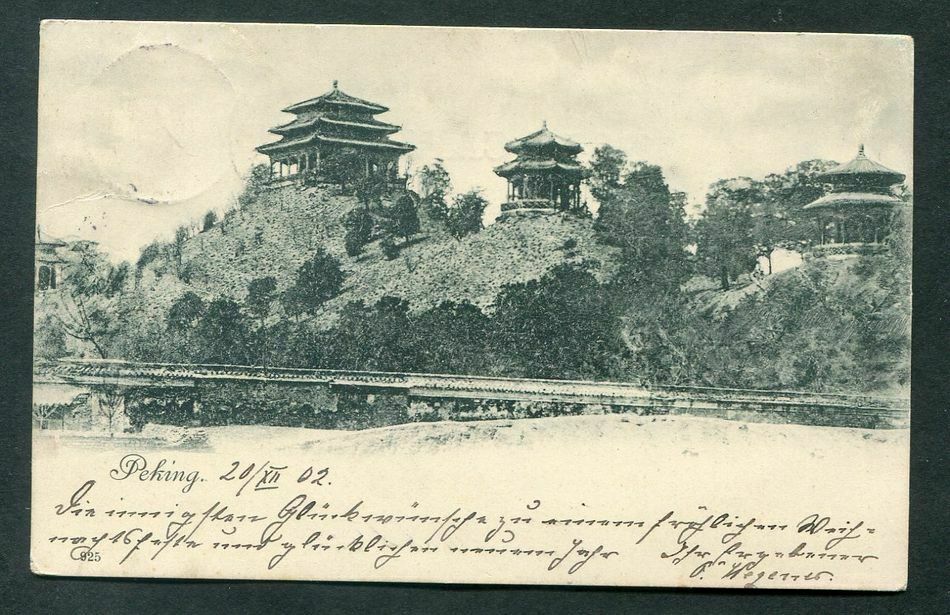 Peking. 20/XII 02.
Die innigsten Glückwünsche zu einem fröhlichen Weih-
nachtsfeste und glücklichen neuem Jahr Ihr Ergebener
925